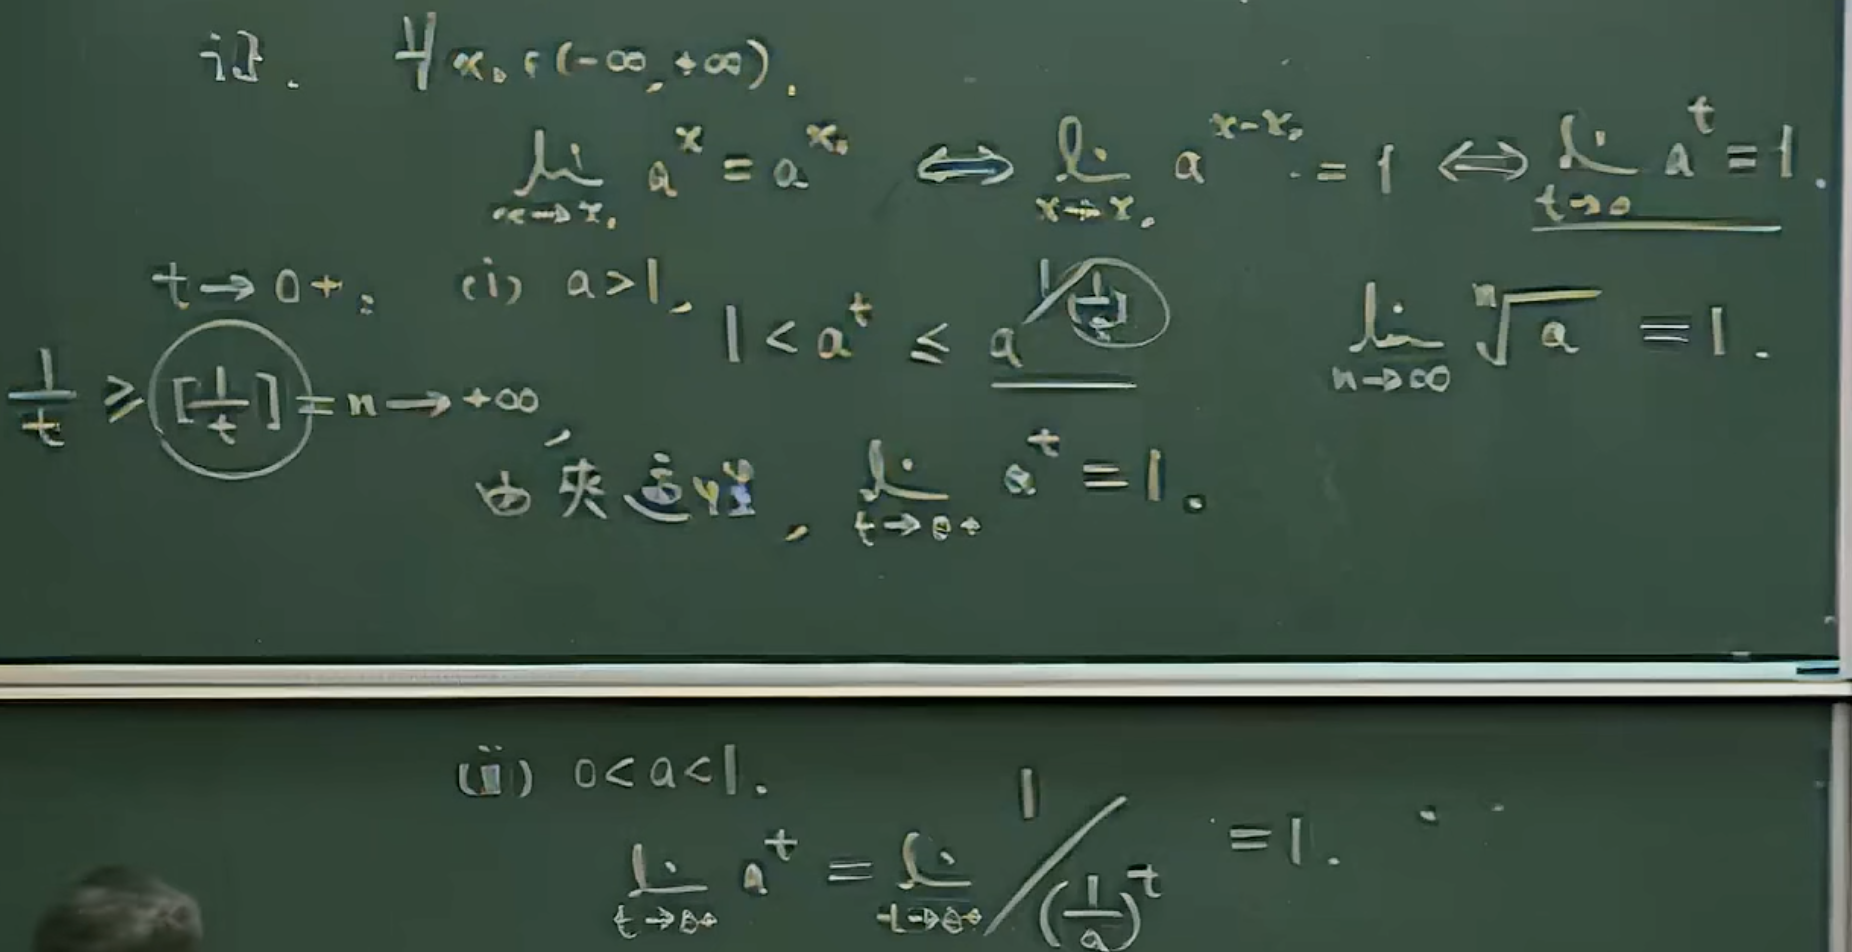 证. ∀x₀∈(-∞,+∞).
lim_{x→x₀} a^x = a^{x₀} ⟺ lim_{x→x₀} a^{x-x₀} = 1 ⟺ lim_{t→0} a^t = 1.
t→0+: (i) a>1, 1 < a^t ≤ a^{1/[1/t]} lim_{n→∞} ⁿ√a = 1.
1/t ≥ [1/t] = n → +∞,
由夹逼性, lim_{t→0+} a^t = 1.
(ii) 0<a<1.
lim_{t→0+} a^t = lim_{t→0+} 1/(1/a)^t = 1.